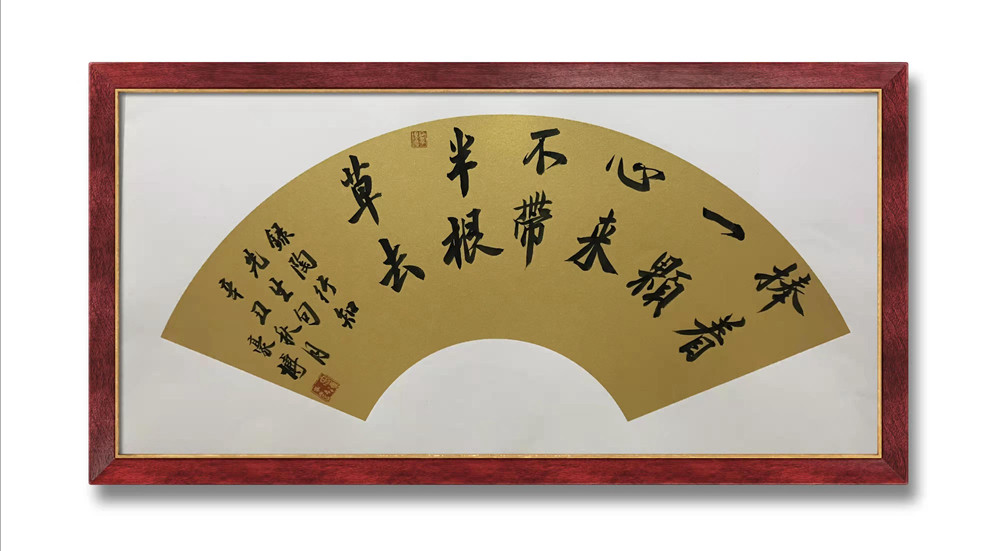 捧着
一顆
心来
不帶
半根
草去
録陶行知
先生句
辛丑秋月
豪博